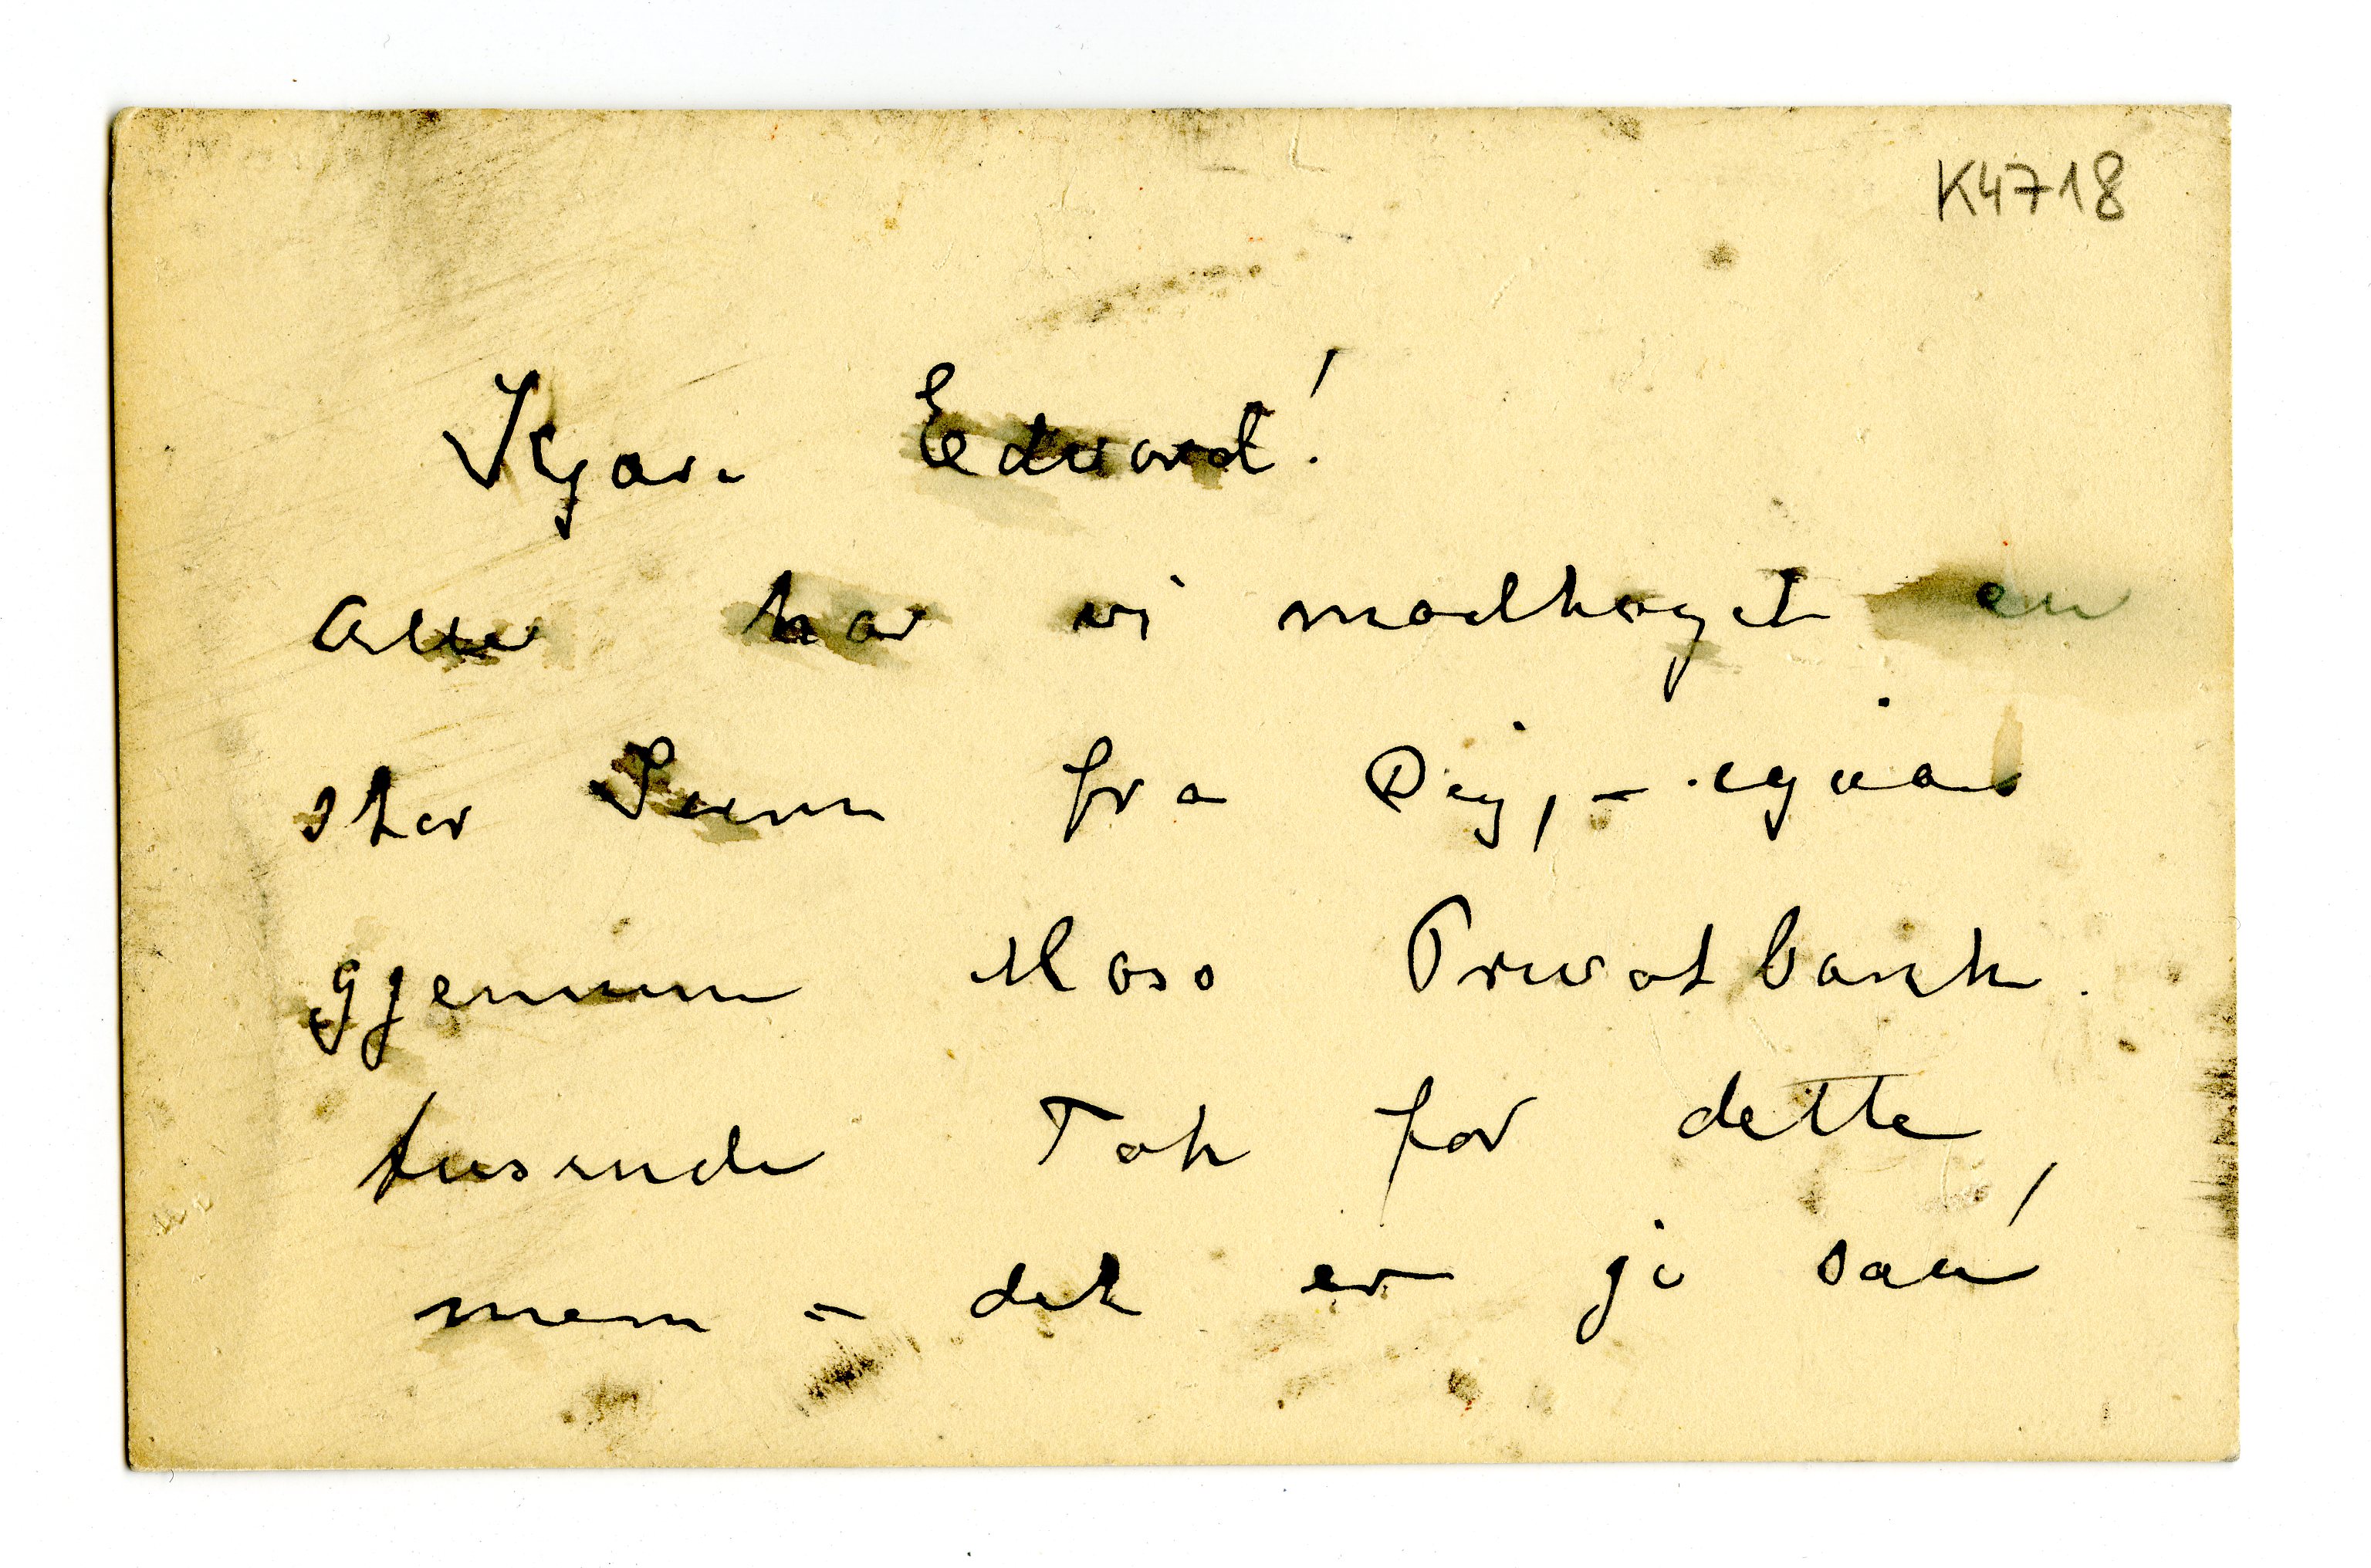 K4718
Kjære Edvard!
Atter har vi modtaget en
stor Sum fra Dig, – igjen
gjennem Moss Privatbank.
tusende Tak for dette,
men – det er jo saa